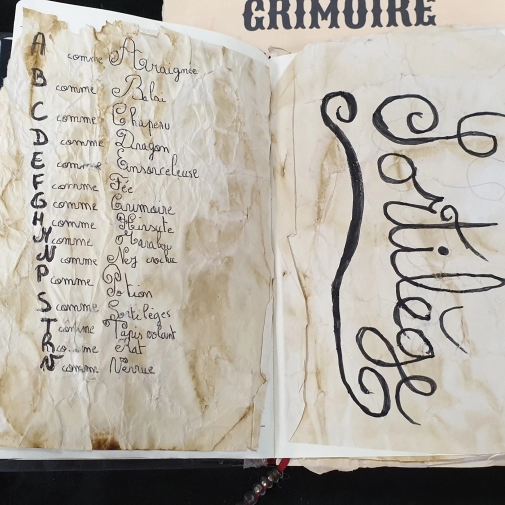 GRIMOIRE
A comme Arraignée
B comme Balai
C comme Chapeau
D comme Dragon
E comme Ensorceleuse
F comme Fée
G comme Grimoire
H comme Hirsute
comme
N comme Nez crochu
P comme Potion
S comme Sortilèges
T comme Tapis volant
R comme Rat
V comme Verrue
Sortilège